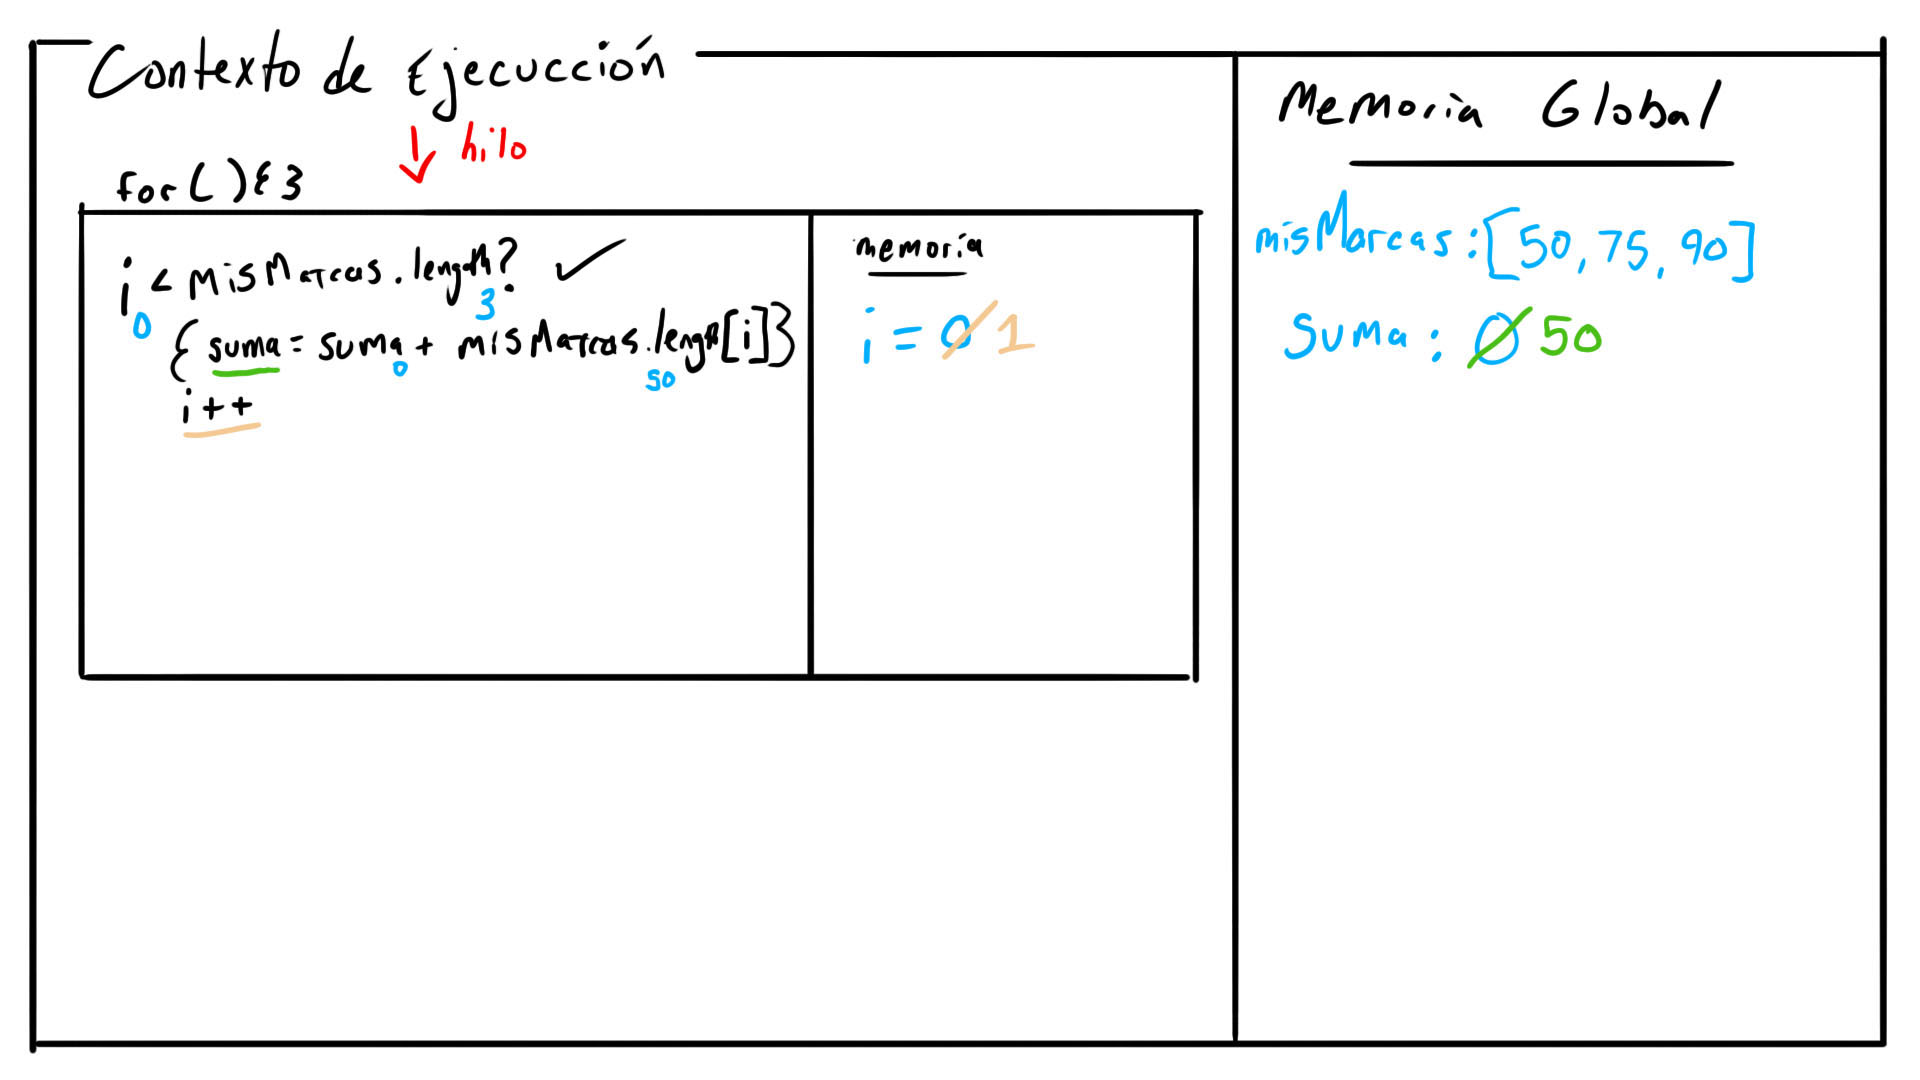 Contexto de Ejecucción
hilo
for ( ) { }
i < misMarcas.length? ✓
0
3
{ suma = suma + misMarcas.length[i] }
0
50
i++
memoria
i = 0 1
Memoria Global
misMarcas: [50, 75, 90]
Suma: 0 50